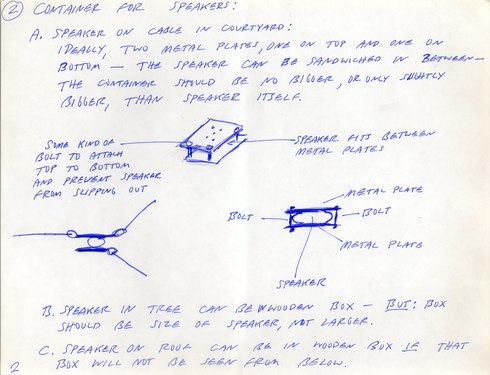 ② CONTAINER FOR SPEAKERS:
A. SPEAKER ON CABLE IN COURTYARD:
IDEALLY, TWO METAL PLATES, ONE ON TOP AND ONE ON
BOTTOM — THE SPEAKER CAN BE SANDWICHED IN BETWEEN —
THE CONTAINER SHOULD BE NO BIGGER, OR ONLY SLIGHTLY
BIGGER, THAN SPEAKER ITSELF.
SOME KIND OF
BOLT TO ATTACH
TOP TO BOTTOM
AND PREVENT SPEAKER
FROM SLIPPING OUT
SPEAKER FITS BETWEEN
METAL PLATES
METAL PLATE
BOLT
BOLT
METAL PLATE
SPEAKER
B. SPEAKER IN TREE CAN BE WOODEN BOX — BUT: BOX
SHOULD BE SIZE OF SPEAKER, NOT LARGER.
C. SPEAKER ON ROOF CAN BE IN WOODEN BOX IF THAT
BOX WILL NOT BE SEEN FROM BELOW.
2